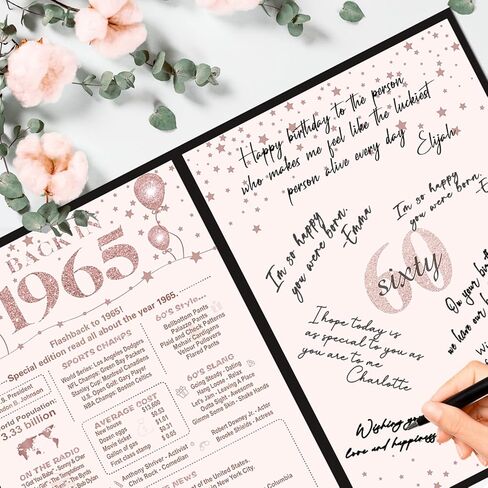 BACK IN
1965
Flashback to 1965!
...Special edition read all about the year 1965.
SPORTS CHAMPS
World Series: Los Angeles Dodgers
NFL Champs: Green Bay Packers
Stanley Cup: Montreal Canadiens
U.S. Open Golf: Gary Player
NBA Champs: Boston Celtics
60's Style...
Bellbottom Pants
Palazzo Pants
Plaid and Check Patterns
Mohair Cardigans
Velour Pullovers
Flared Pants
President
B. Johnson
World Population:
3.33 billion
AVERAGE COST
New house $13,600
Dozen eggs $0.53
Movie ticket $1.01
Gallon of gas $0.31
First class stamp $.05
60's SLANG
Going Steady - Dating
Hang Loose - Relax
Let's Jam - Leaving A Place
Outta Sight - Awesome
Gimme Some Skin - Shake Hands
ON THE RADIO
Anthony Shriver - Activist
Chris Rock - Comedian
Robert Downey Jr - Actor
Brooke Shields - Actress
NEWS
of the United States.
in New York City.
Columbia
Happy birthday to the person
who makes me feel like the luckiest
person alive every day
Elijah
I'm so happy
you were born.
-Emma
I'm so happy
you were born.
60
sixty
I hope today is
as special to you as
you are to me
Charlotte
On your
we have
Wishing you
love and happiness